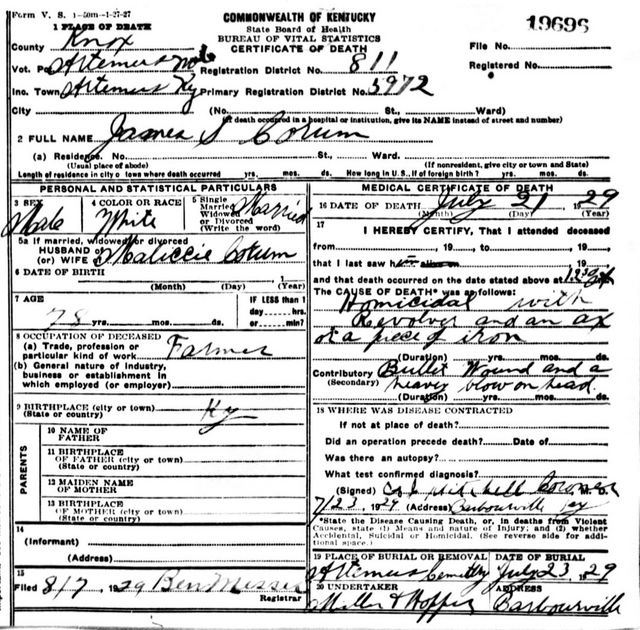 Form V. S. 1-50m-1-27-27
COMMONWEALTH OF KENTUCKY
State Board of Health
BUREAU OF VITAL STATISTICS
CERTIFICATE OF DEATH
19696
File No.
Registered No.
1 PLACE OF DEATH
County Knox
Vot. P Artemus No
Inc. Town Artemus Ky
City
Registration District No. 811
Primary Registration District No. 5972
(No. St., Ward)
(If death occurred in a hospital or institution, give its NAME instead of street and number)
2 FULL NAME James S Corum
(a) Residence. No. St., Ward.
(Usual place of abode)
(If nonresident, give city or town and State)
Length of residence in city or town where death occurred yrs. mos. ds. How long in U.S., if of foreign birth? yrs. mos. ds.
PERSONAL AND STATISTICAL PARTICULARS
3 SEX Male
4 COLOR OR RACE White
5 Single Married Widowed or Divorced (Write the word) Married
5a If married, widowed or divorced
HUSBAND of
(or) WIFE of Corum
6 DATE OF BIRTH 1
(Month) (Day) (Year)
7 AGE 78 yrs. mos. ds.
IF LESS than 1
day hrs.
or min.?
8 OCCUPATION OF DECEASED
(a) Trade, profession or
particular kind of work Farmer
(b) General nature of industry,
business or establishment in
which employed (or employer)
9 BIRTHPLACE (city or town) Ky
(State or country)
PARENTS
10 NAME OF
FATHER
11 BIRTHPLACE
OF FATHER (city or town)
(State or country)
12 MAIDEN NAME
OF MOTHER
13 BIRTHPLACE
OF MOTHER (city or town)
(State or country)
14
(Informant)
(Address)
15
Filed 8/7, 1929 Ben Messer
Registrar
MEDICAL CERTIFICATE OF DEATH
16 DATE OF DEATH July 21 1929
(Month) (Day) (Year)
17
I HEREBY CERTIFY, That I attended deceased
from , 19 , to , 19
that I last saw h alive on , 19
and that death occurred on the date stated above at
The CAUSE OF DEATH* was as follows:
Homicidal with
Revolver and an ax
or a piece of iron
(Duration) yrs. mos. ds.
Contributory Bullet Wound and a
(Secondary) heavy blow on head.
(Duration) yrs. mos. ds.
18 WHERE WAS DISEASE CONTRACTED
If not at place of death?
Did an operation precede death? Date of
Was there an autopsy?
What test confirmed diagnosis?
(Signed) Mitchell Coroner M. D.
7/23, 1929 (Address) Barbourville Ky
*State the Disease Causing Death, or, in deaths from Violent
Causes, state (1) Means and nature of Injury; and (2) whether
Accidental, Suicidal or Homicidal. (See reverse side for addi-
tional space.)
19 PLACE OF BURIAL OR REMOVAL DATE OF BURIAL
Artemus Cemetery July 23 1929
20 UNDERTAKER ADDRESS
Miller & Hopper Barbourville